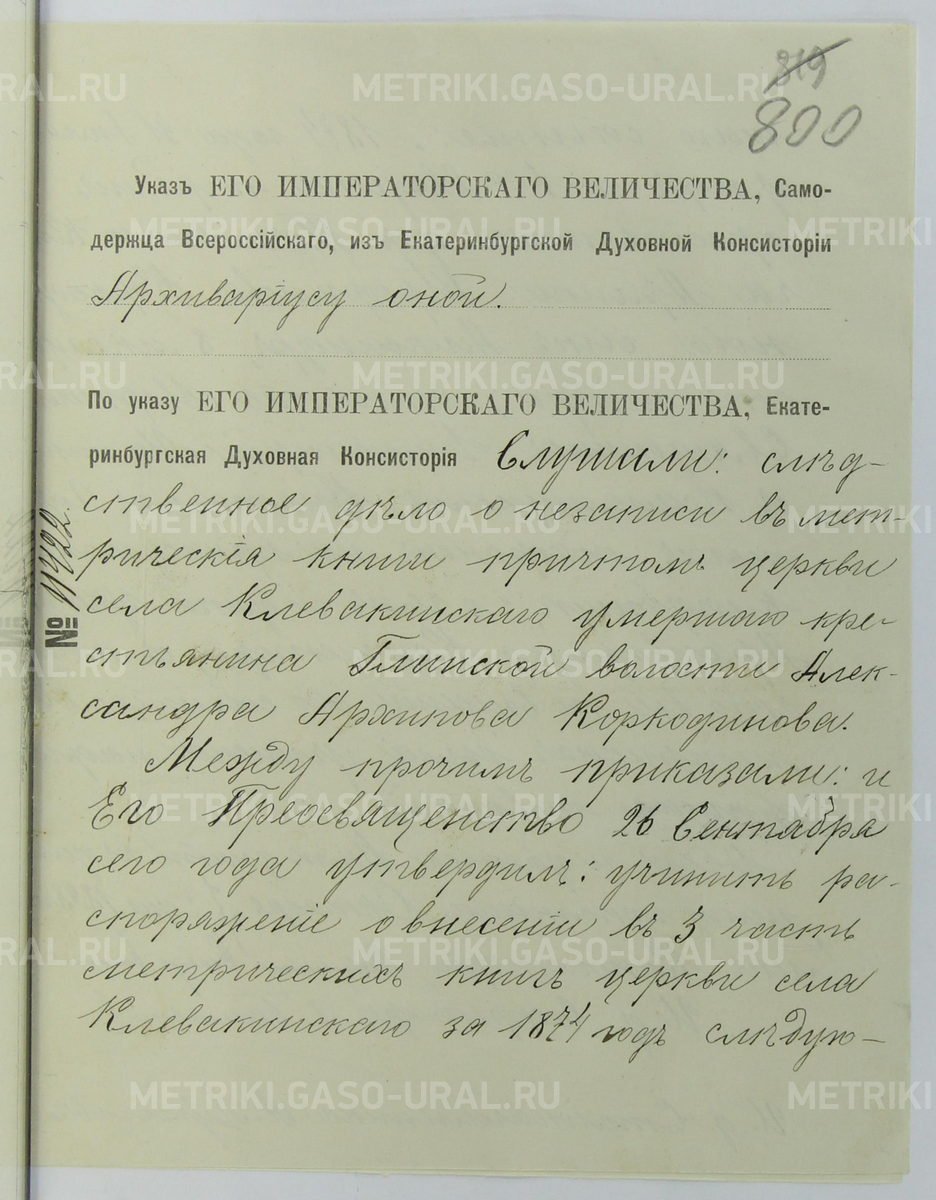 819
800
Указъ ЕГО ИМПЕРАТОРСКАГО ВЕЛИЧЕСТВА, Само-
держца Всероссійскаго, изъ Екатеринбургской Духовной Консисторіи
Архиваріусу оной.
По указу ЕГО ИМПЕРАТОРСКАГО ВЕЛИЧЕСТВА, Екате-
ринбургская Духовная Консисторія Слушали: слѣд-
ственное дѣло о незаписи въ мет-
рическія книги причтомъ церкви
села Клевакинскаго умершаго кре-
стьянина Глинской волости Алек-
сандра Архипова Коркодинова.
Между прочимъ приказали: и
Его Преосвященство 26 Сентября
сего года утвердилъ: учинить ра-
споряженіе о внесеніи въ 3 часть
метрическихъ книгъ церкви села
Клевакинскаго за 1874 годъ слѣдую-
№ 11422.
METRIKI.GASO-URAL.RU